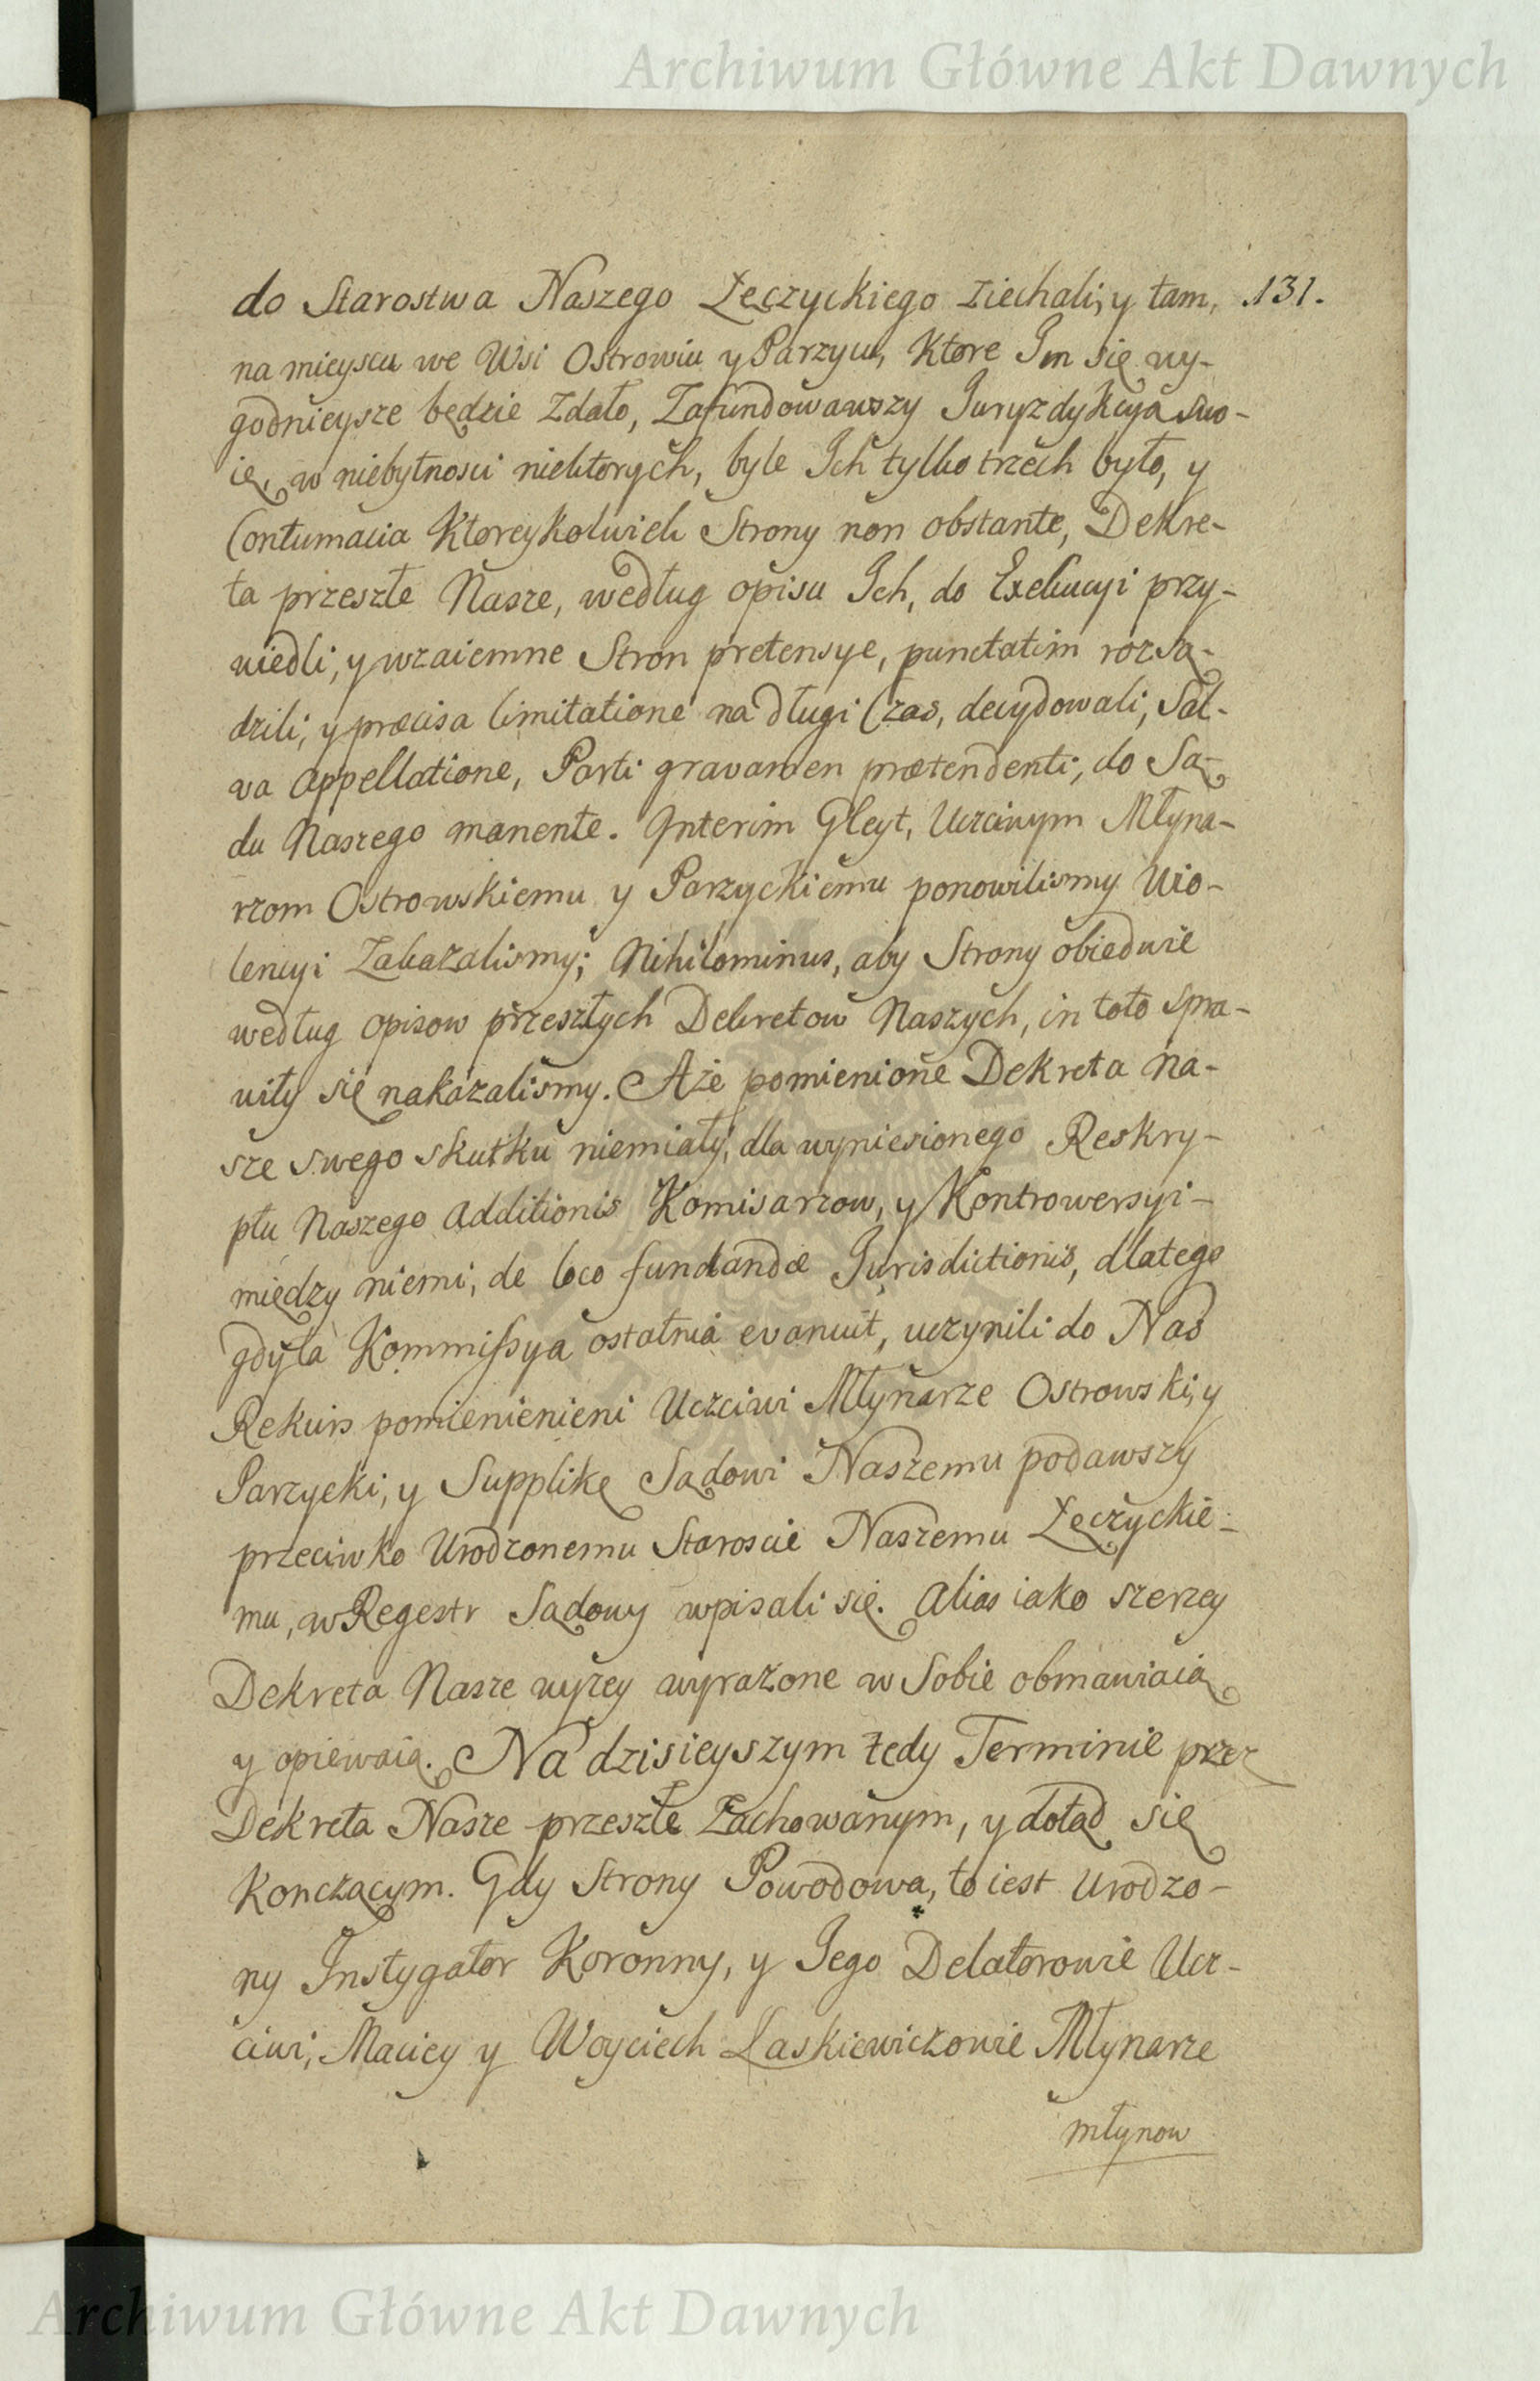 Archiwum Główne Akt Dawnych
do Starostwa Naszego Łęczyckiego ziechali, y tam, 131.
na mieyscu we Wsi Ostrowiu y Parzyw, Ktore Im się wy-
godnieysze będzie Zdało, Zafundowawszy Juryzdykcyą swo-
ię, w niebytnosci niektorych, byle Ich tylko trzech było, y
Contumacia Ktoreykolwiek Strony non obstante, Dekre-
ta przeszłe Nasze, według opisu Ich, do Exekucyi przy-
wiedli, y wzaiemne Stron pretensye, punctatim rozsą-
dzili, y præcisa limitatione na długi Czas, decydowali, Sal-
va Appellatione, Parti gravamen prætendenti, do Są-
du Naszego manente. Interim Gleyt, Uczciwym Młyna-
rzom Ostrowskiemu y Parzyckiemu ponowilismy Wio-
lencyi Zakazalismy; Nihilominus, aby Strony obiedwie
według opisow przeszłych Dekretow Naszych, in toto spra-
wiły się nakazalismy. Aże pomienione Dekreta Na-
sze swego skutku niemiały, dla wyniesionego Reskry-
ptu Naszego Additionis Komisarzow, y Kontrowersyi-
między niemi, de loco fundandæ Jurisdictionis, dlatego
gdy ta Kommissya ostatnia evanuit, uczynili do Nas
Rekurs pomienienieni Uczciwi Młynarze Ostrowski, y
Parzycki, y Supplikę Sądowi Naszemu podawszy
przeciwko Urodzonemu Staroscie Naszemu Łęczyckie-
mu, w Regestr Sądowy wpisali się. Alias iako szerzey
Dekreta Nasze wyżey wyrażone w Sobie obmawiaią
y opiewaią. Na dzisieyszym tedy Terminie przez
Dekreta Nasze przeszłe Zachowanym, y dotąd się
Kończącym. Gdy Strony Powodowa, to iest Urodzo-
ny Instygator Koronny, y Jego Delatorowie Ucz-
ciwi, Maciey y Woyciech Łaskiewiczowie Młynarze
młynow
Archiwum Główne Akt Dawnych